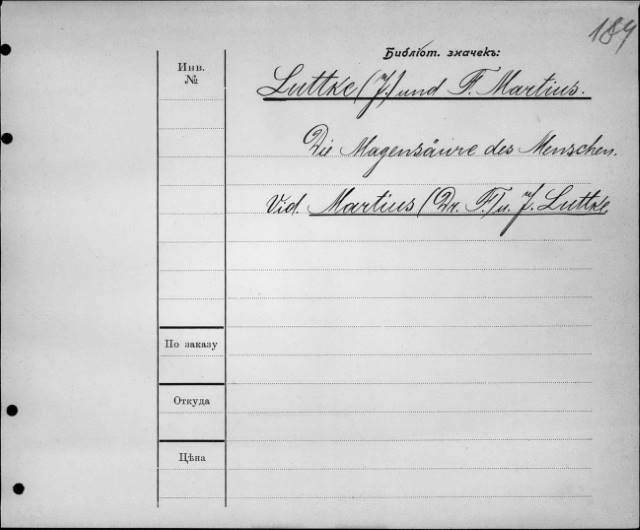 189
Библіот. значекъ:
Инв.
№
Luttke (J.) und F. Martius.
Die Magensäure des Menschen.
Vid. Martius (Dr. F.) u. J. Luttke
По заказу
Откуда
Цѣна